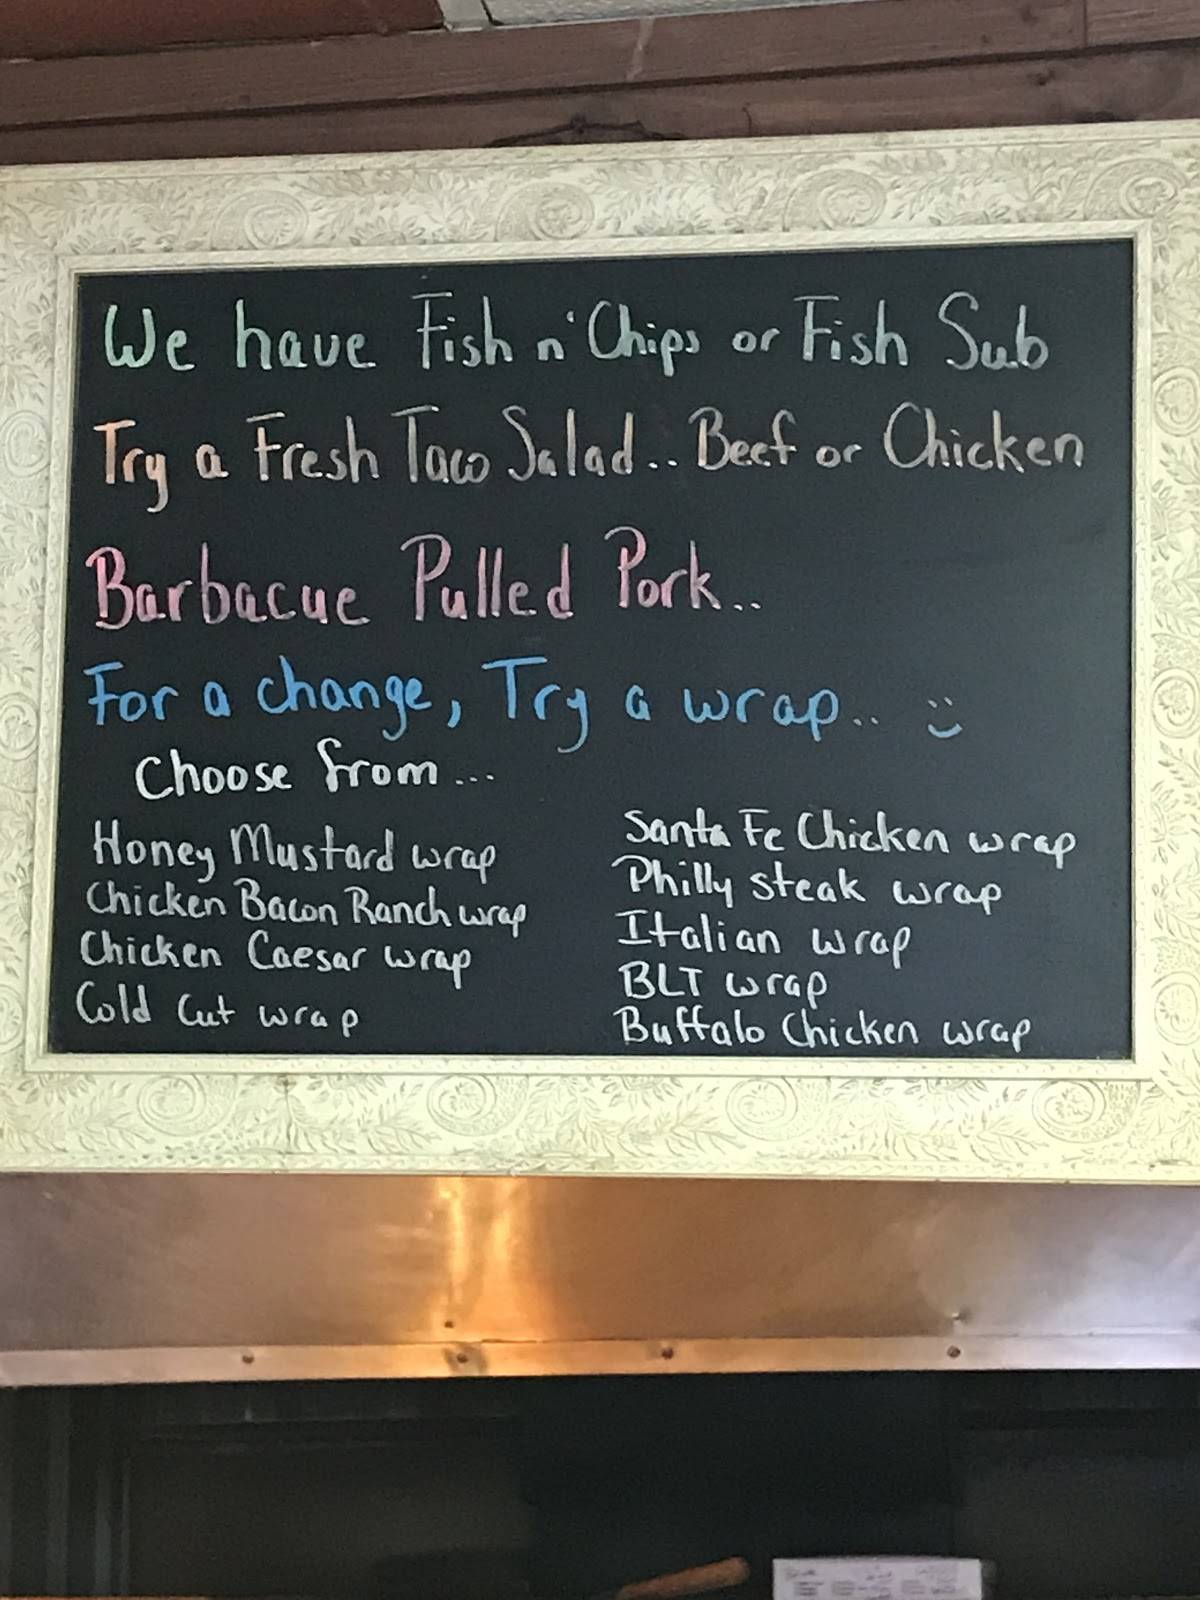 We have Fish n' Chips or Fish Sub
Try a Fresh Taco Salad.. Beef or Chicken
Barbacue Pulled Pork..
For a change, Try a wrap.. :)
Choose from...
Honey Mustard wrap
Chicken Bacon Ranch wrap
Chicken Caesar wrap
Cold Cut wrap
Santa Fe Chicken wrap
Philly steak wrap
Italian wrap
BLT wrap
Buffalo Chicken wrap